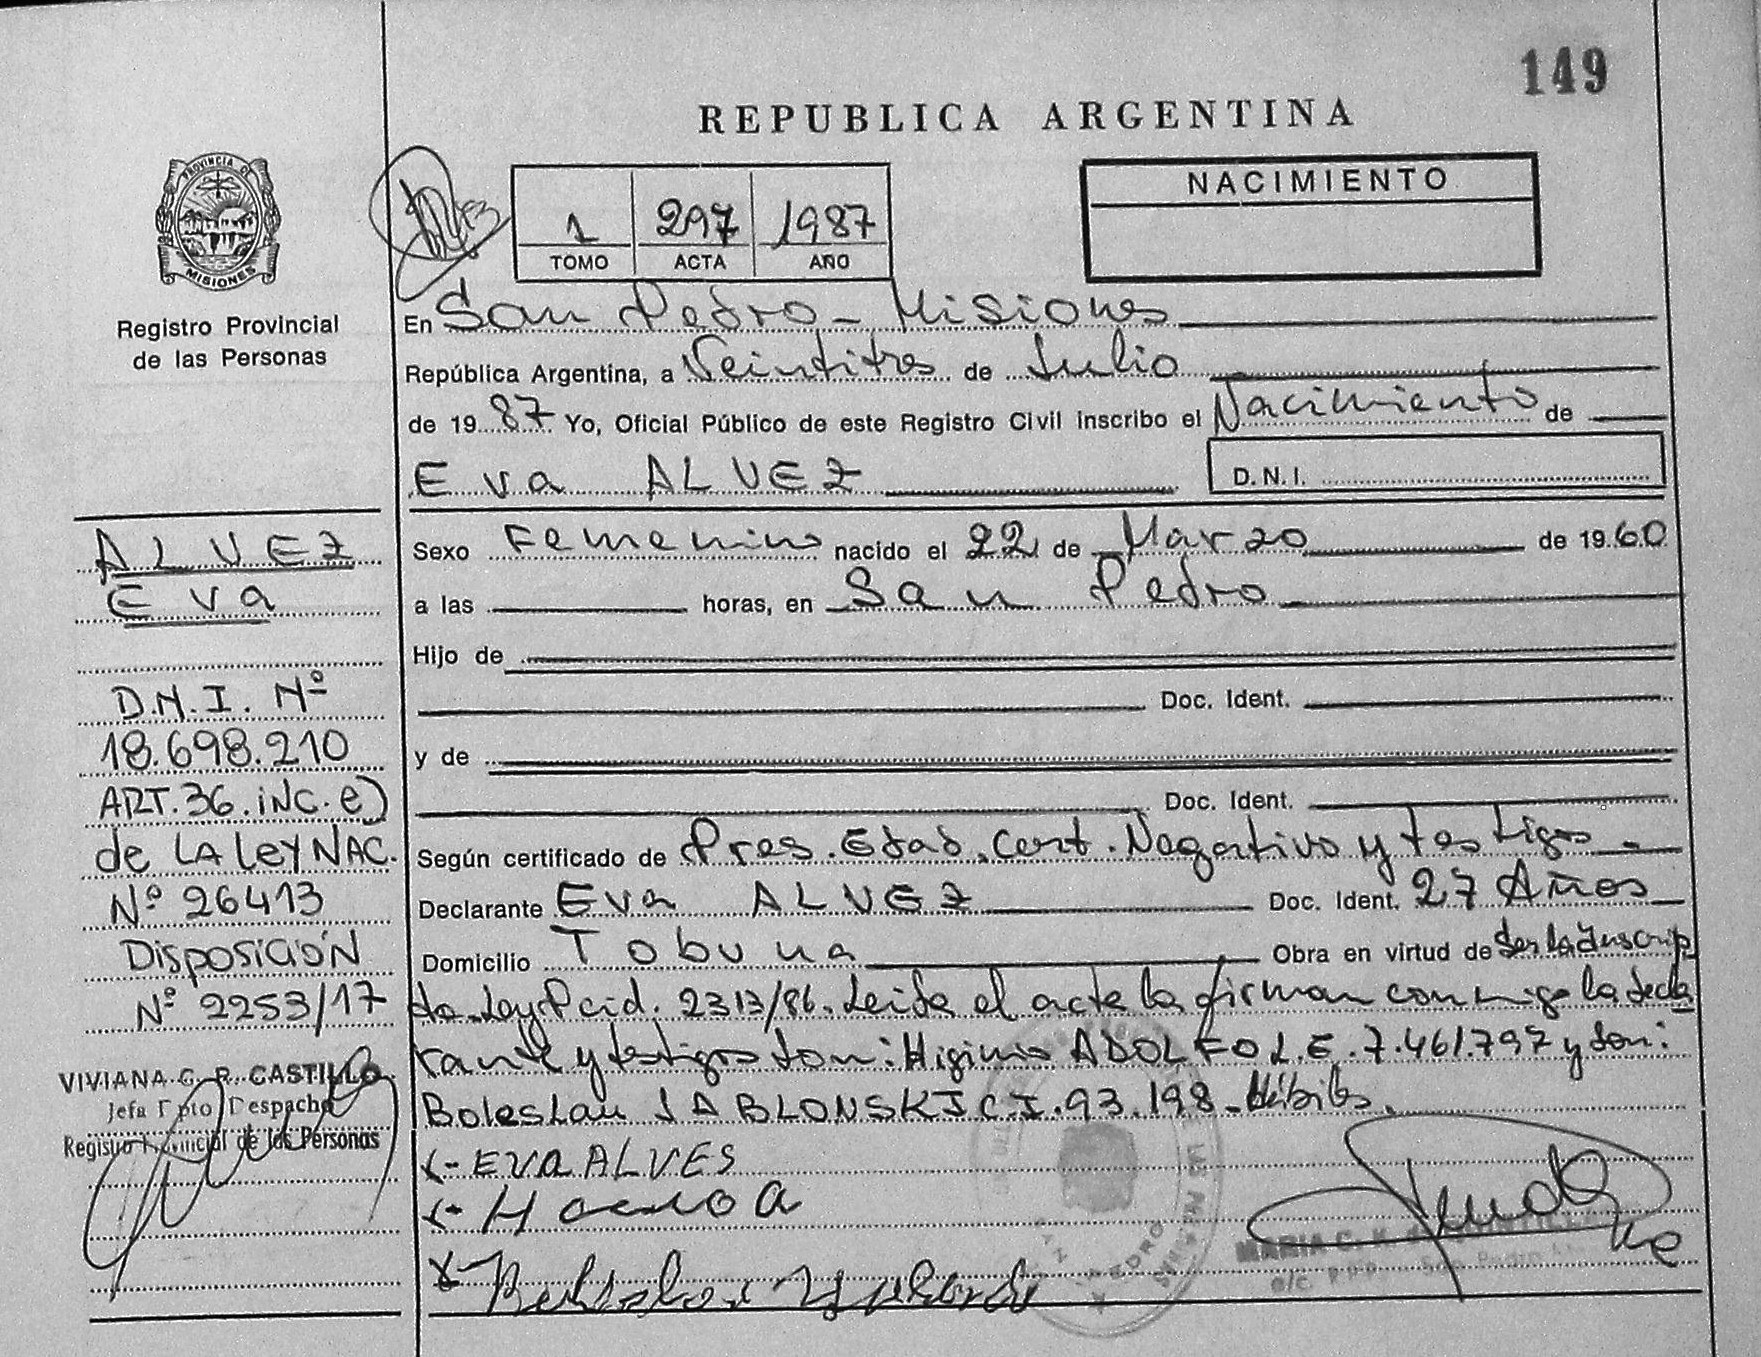 149
REPUBLICA ARGENTINA
PROVINCIA DE
MISIONES
Registro Provincial
de las Personas
1 297 1987
TOMO ACTA AÑO
NACIMIENTO
En San Pedro - Misiones
República Argentina, a Veintitres de Julio
de 19 87 Yo, Oficial Público de este Registro Civil inscribo el Nacimiento de
Eva ALVEZ
D.N.I.
ALVEZ
Eva
D.N.I. Nº
18.698.210
ART.36.iNC.e)
de LA LeY NAC.
Nº 26413
DISPOSICIÓN
Nº 2253/17
VIVIANA G. R. CASTILLO
Jefa Dpto Despacho
Registro Provincial de las Personas
Sexo Femenino nacido el 22 de Marzo de 19 60
a las horas, en San Pedro
Hijo de
Doc. Ident.
y de
Doc. Ident.
Según certificado de Pres. Edad. Cert. Negativo y testigos
Declarante Eva ALVEZ Doc. Ident. 27 Años
Domicilio Tobuna Obra en virtud de Ser la Inscrip
Ley Pcid. 2313/86. Leida el acta la firman conmigo la decla
rante y testigos son: Higinio ADOLFO L.E. 7.461.797 y son:
Boleslau JABLONSKI C.I. 93.198 - Hábiles.
X- EVA ALVES
X-
X-
MARIA C. K.